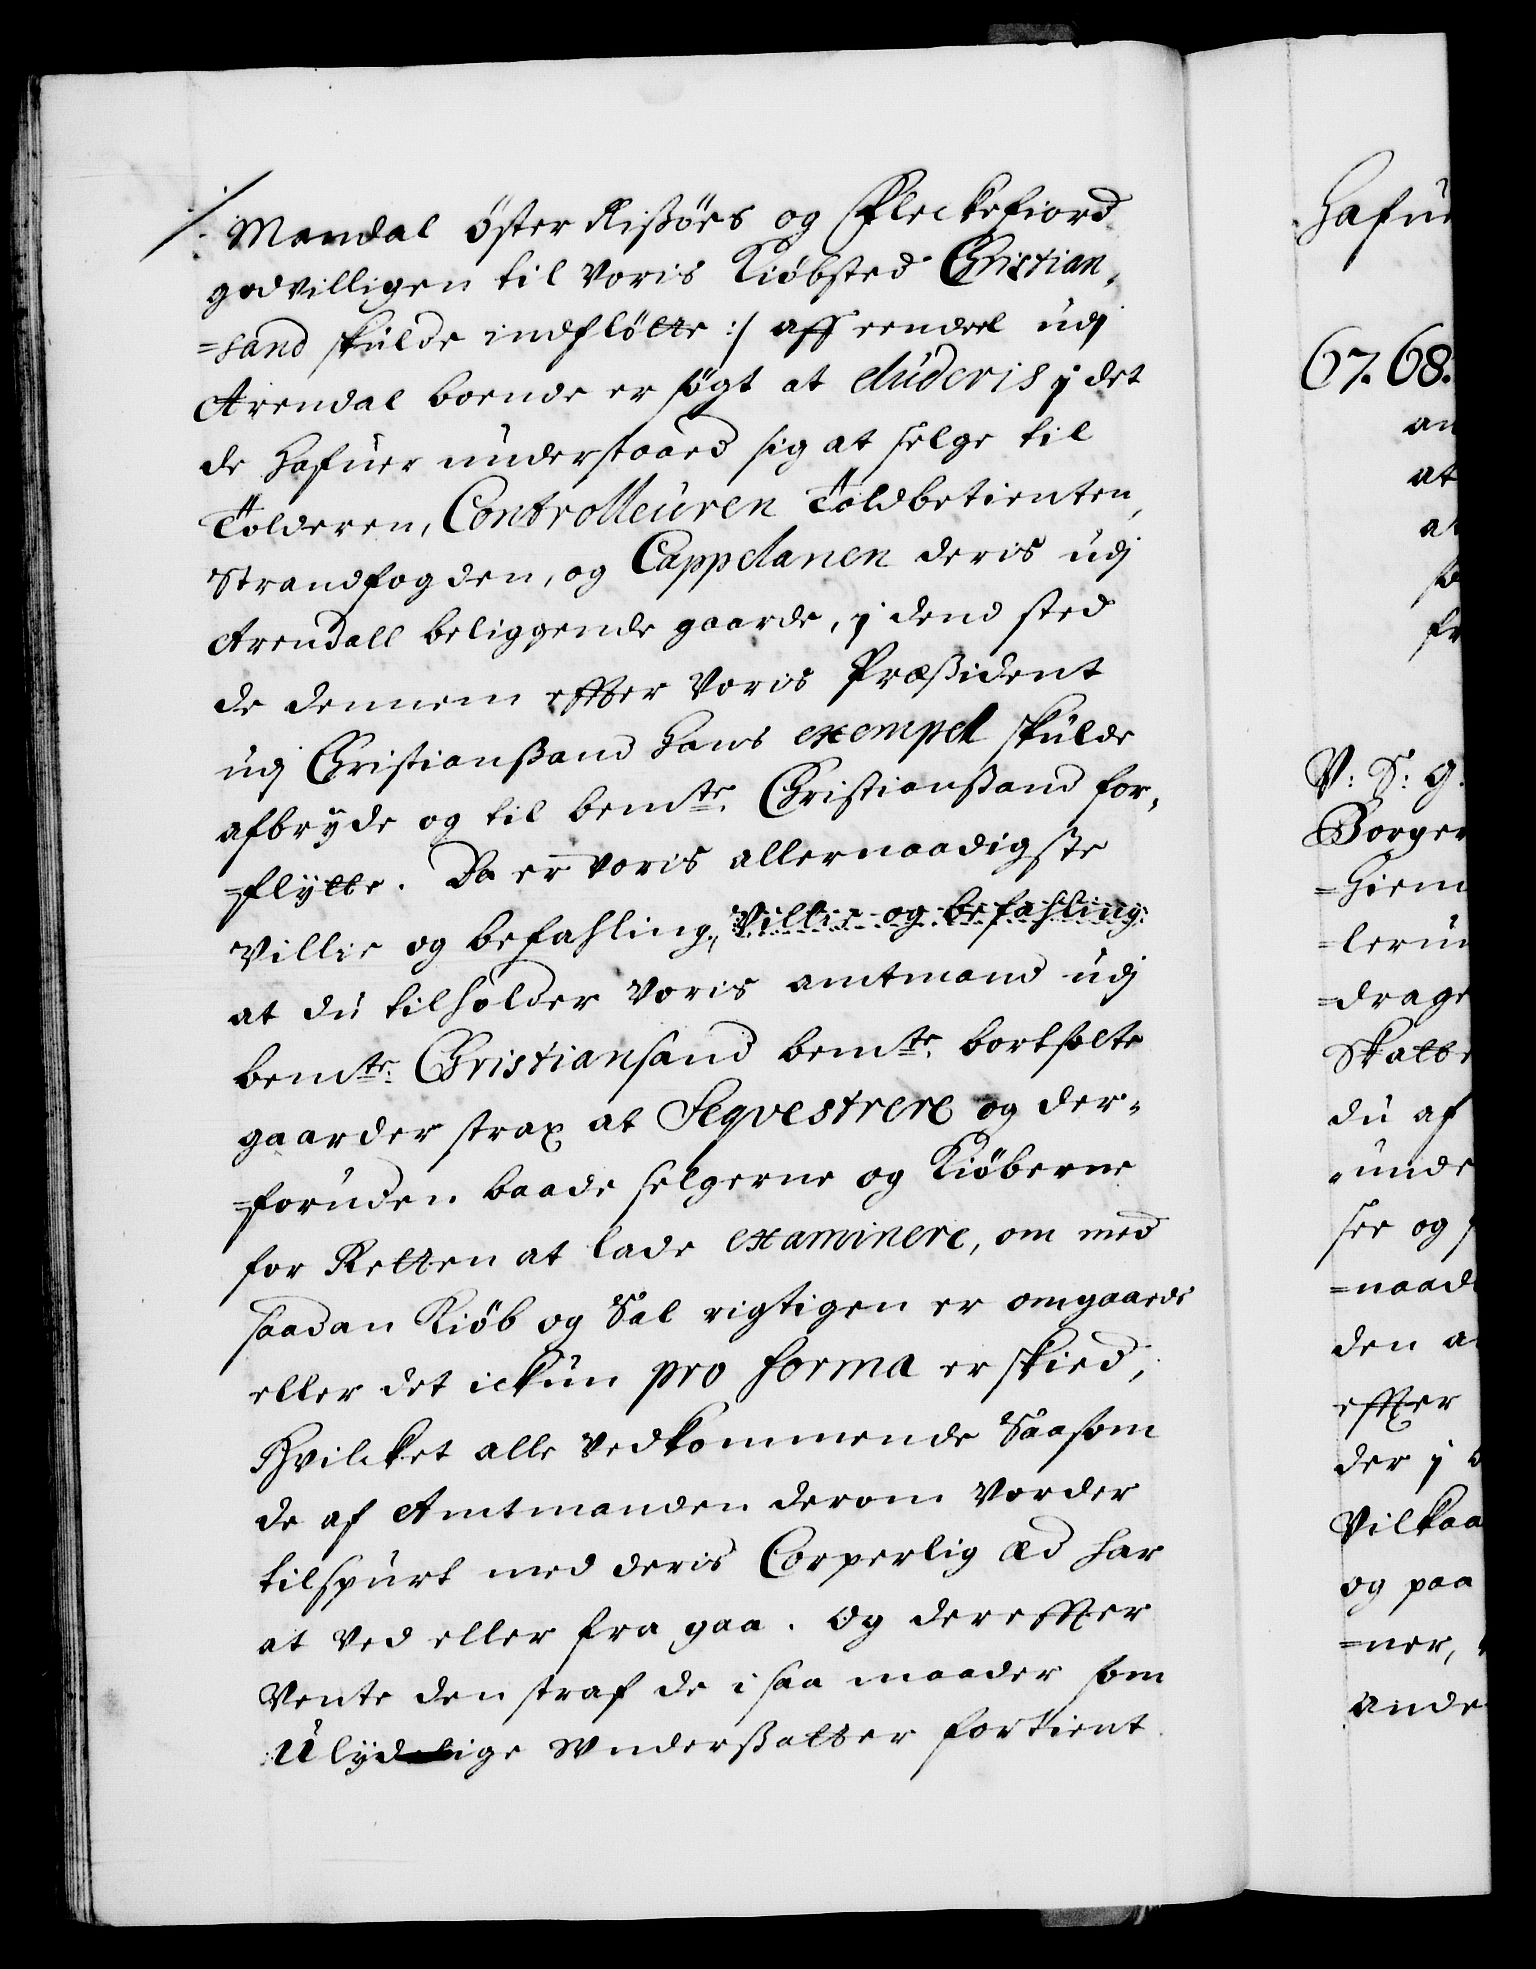 /: Mandal öster Rißöer og Fleckefiord
godvilligen til voris Kiöbsted Christian,
=sand skulde indflötte :/ aff eendeel udj
Arendal boende er søgt at eluderis j det
de hafuer understaaed sig at selge til
Tolderen, Controlleuren Toldbetienten,
Strandfogden, og Cappelanen deris udj
Arendall beliggende gaarde, j dend sted
de dennem effter Voris Præßident
udj Christianßand hans exempel skulde
afbryde og til bemte. Christianßand for,
=flytte. Da er voris allernaadigste
Villie og befahling, Villie og befahling
at du tilholder Voris amtmand udj
bemte. Christiansand bemte. bortsolte
gaarder strax at Seqvestrere og der=
=foruden baade selgerne og Kiöberne
for Retten at lade examinere, om med
saadan Kiöb og Sal rigtigen er omgaaede
eller det ickun pro forma er skied,
Hvilcket alle vedkommende Saasom
de af Amtmanden derom vorder
tilspurt med deris Corperlig æd har
at ved eller fra gaa. Og dereffter
vente den straf de i saa maader som
Ulydige Wnderßatter fortient
Hafue
67. 68.
an
at
fr
V: S: G.
Borger
=hiem
=leru
=drage
Skatte
du af
=unde
see og
=naad
den a
effter
der j
Vilkaa
og paa
=ner,
ande